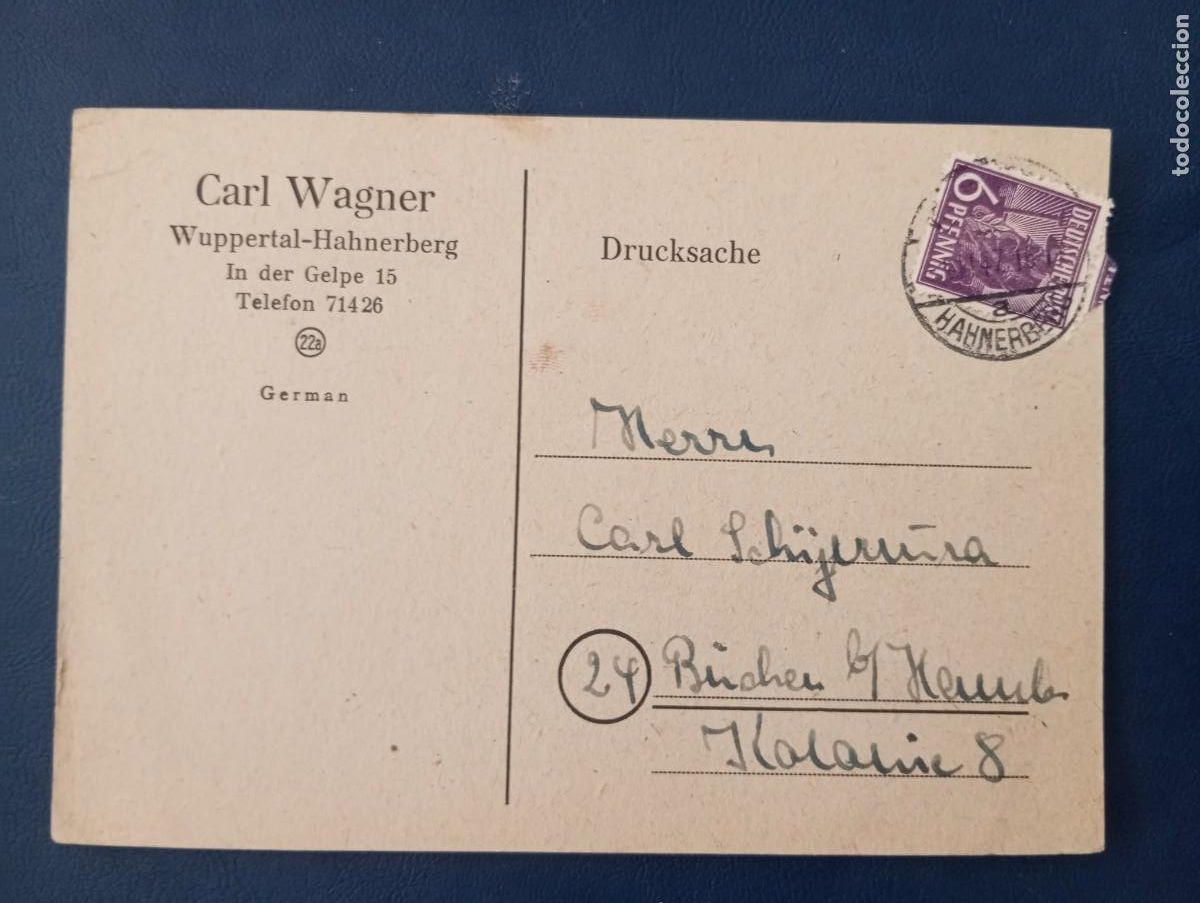 Carl Wagner
Wuppertal-Hahnerberg
In der Gelpe 15
Telefon 71426
22a
German
Drucksache
6 PFENNIG
DEUTSCHE POST
a
HAHNERB
Herrn
Carl
24 Büchen b/ Hamb
Kolonie 8
todocoleccion